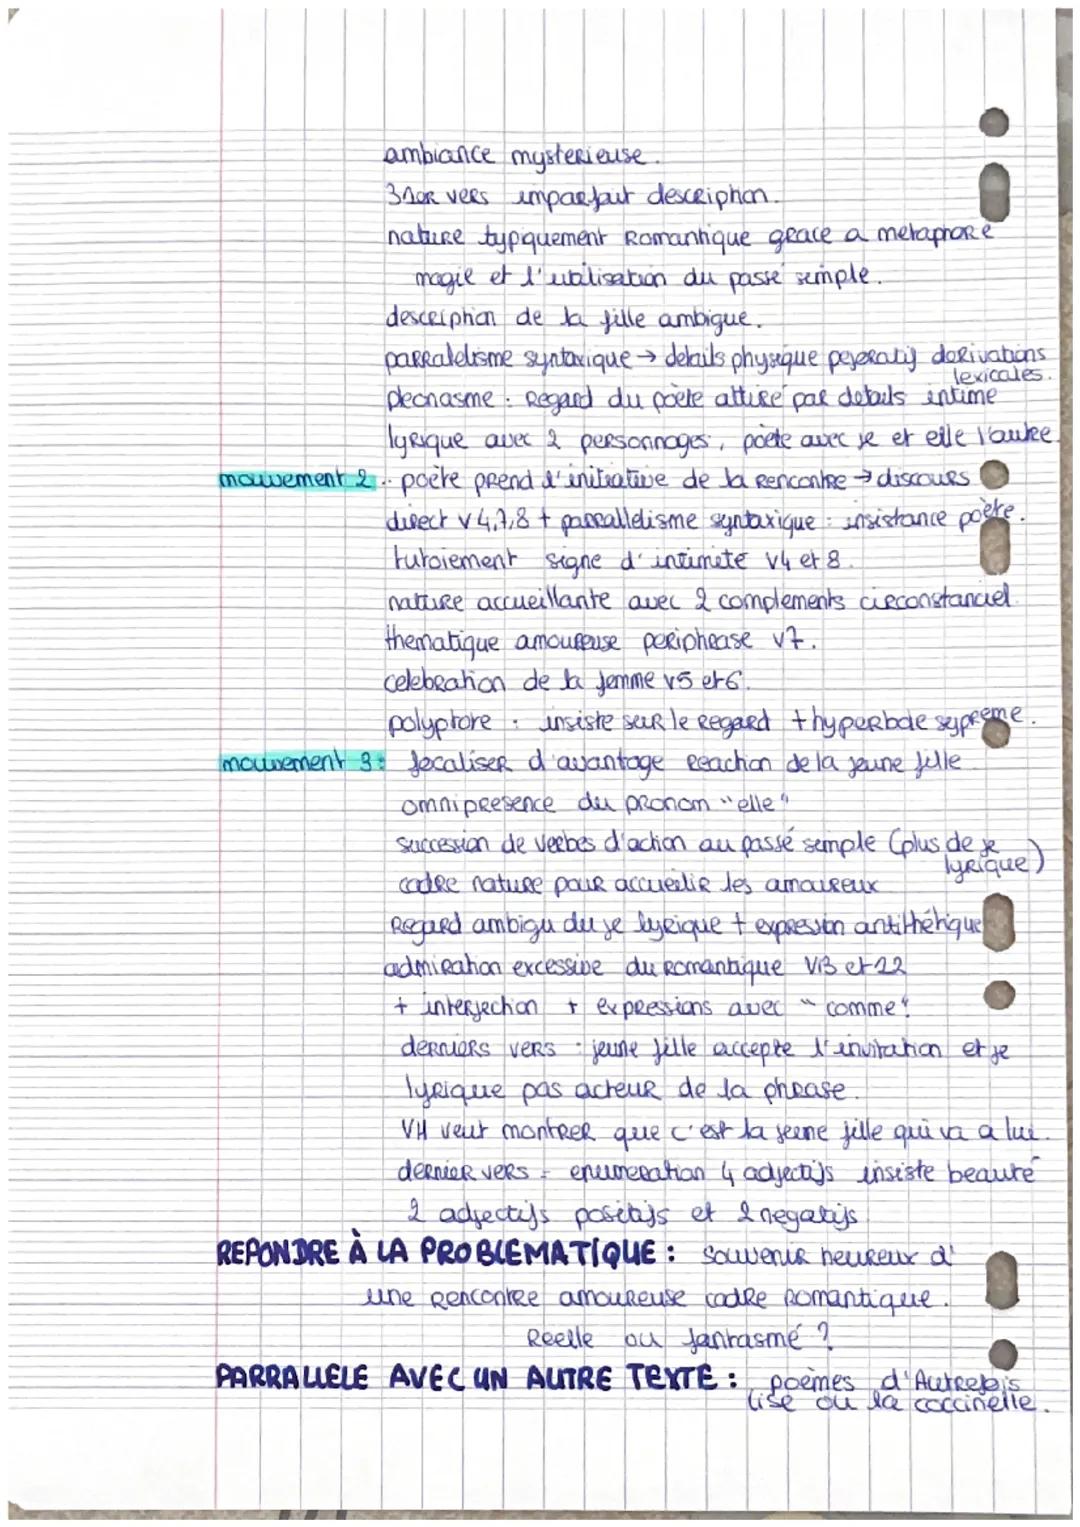 ambiance mysterieuse.
3 1er vers imparfait description.
nature typiquement Romantique grace a metaphore
magie et l'utilisation du passé simple.
description de la fille ambigue.
parralelisme syntaxique → details physique pejeratif derivations
lexicales.
pleonasme : Regard du poète attiré par details intime
lyrique avec 2 personnages, poète avec je et elle l'autre.
mouvement 2 : poète prend l'initiative de la rencontre → discours
direct v4,7,8 + parrallelisme syntaxique : insistance poète.
tutoiement signe d'intimité v4 et 8.
nature accueillante avec 2 complements circonstanciel.
thematique amoureuse periphrase v7.
celebration de la femme v5 et 6.
polyptore : insiste sur le regard + hyperbole supreme.
mouvement 3 : focaliser d'avantage reaction de la jeune fille
omnipresence du pronom "elle"
succession de verbes d'action au passé simple (plus de je
lyrique)
cadre nature pour accueilir les amoureux
Regard ambigu du je lyrique + expression antithétique
admiration excessive du romantique v13 et 12
+ interjection + expressions avec "comme"
derniers vers : jeune fille accepte l'invitation et je
lyrique pas acteur de la phrase.
VH veut montrer que c'est la jeune fille qui va a lui.
dernier vers = enumeration 4 adjectifs insiste beauté
2 adjectifs positifs et 2 negatifs
REPONDRE À LA PROBLEMATIQUE : souvenir heureux d'
une rencontre amoureuse cadre romantique.
Reelle ou fantasmé ?
PARRALLELE AVEC UN AUTRE TEXTE : poèmes d'Autrefois
lise ou la coccinelle.